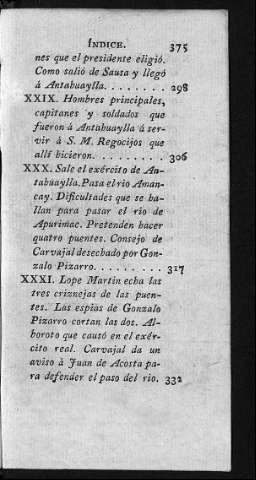 ÍNDICE. 375
nes que el presidente eligió.
Como salió de Sausa y llegó
á Antahuaylla. . . . . . . . 298
XXIX. Hombres principales,
capitanes y soldados que
fueron á Antahuaylla á ser-
vir à S. M. Regocijos que
allí hicieron. . . . . . . . . 306
XXX. Sale el exército de An-
tahuaylla. Pasa el rio Aman-
cay. Dificultades que se ha-
llan para pasar el rio de
Apurimac. Pretenden hacer
quatro puentes. Consejo de
Carvajal desechado por Gon-
zalo Pizarro. . . . . . . . . . 317
XXXI. Lope Martin echa las
tres criznejas de las puen-
tes. Las espias de Gonzalo
Pizarro cortan las dos. Al-
boroto que causó en el exér-
cito real. Carvajal da un
aviso à Juan de Acosta pa-
ra defender el paso del rio. 332